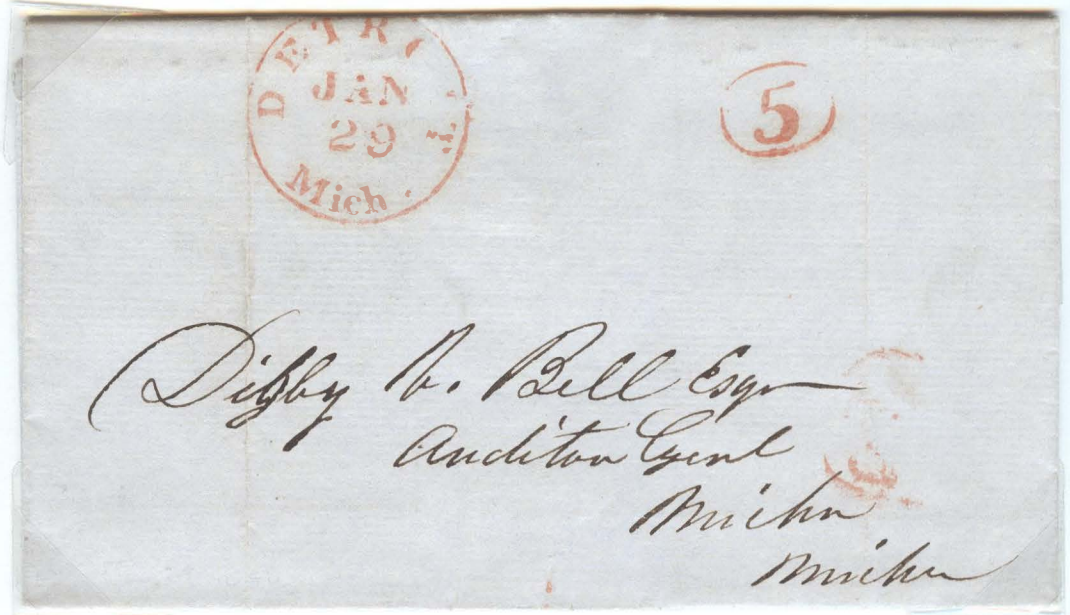 DETROIT
JAN
29
Mich.
5
Digby V. Bell Esqr
Auditor Genl
Michn
Michn